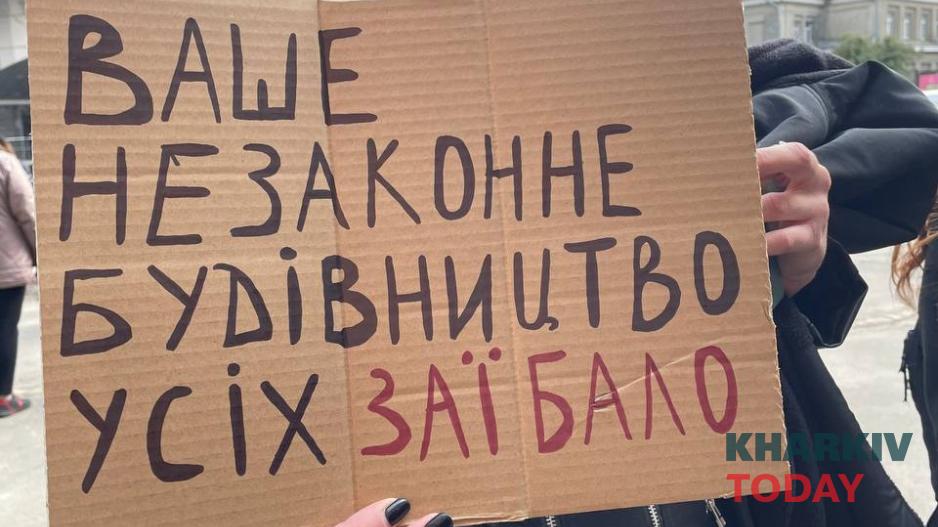 ВАШЕ
НЕЗАКОННЕ
БУДІВНИЦТВО
УСІХ ЗАЇБАЛО
KHARKIV
TODAY